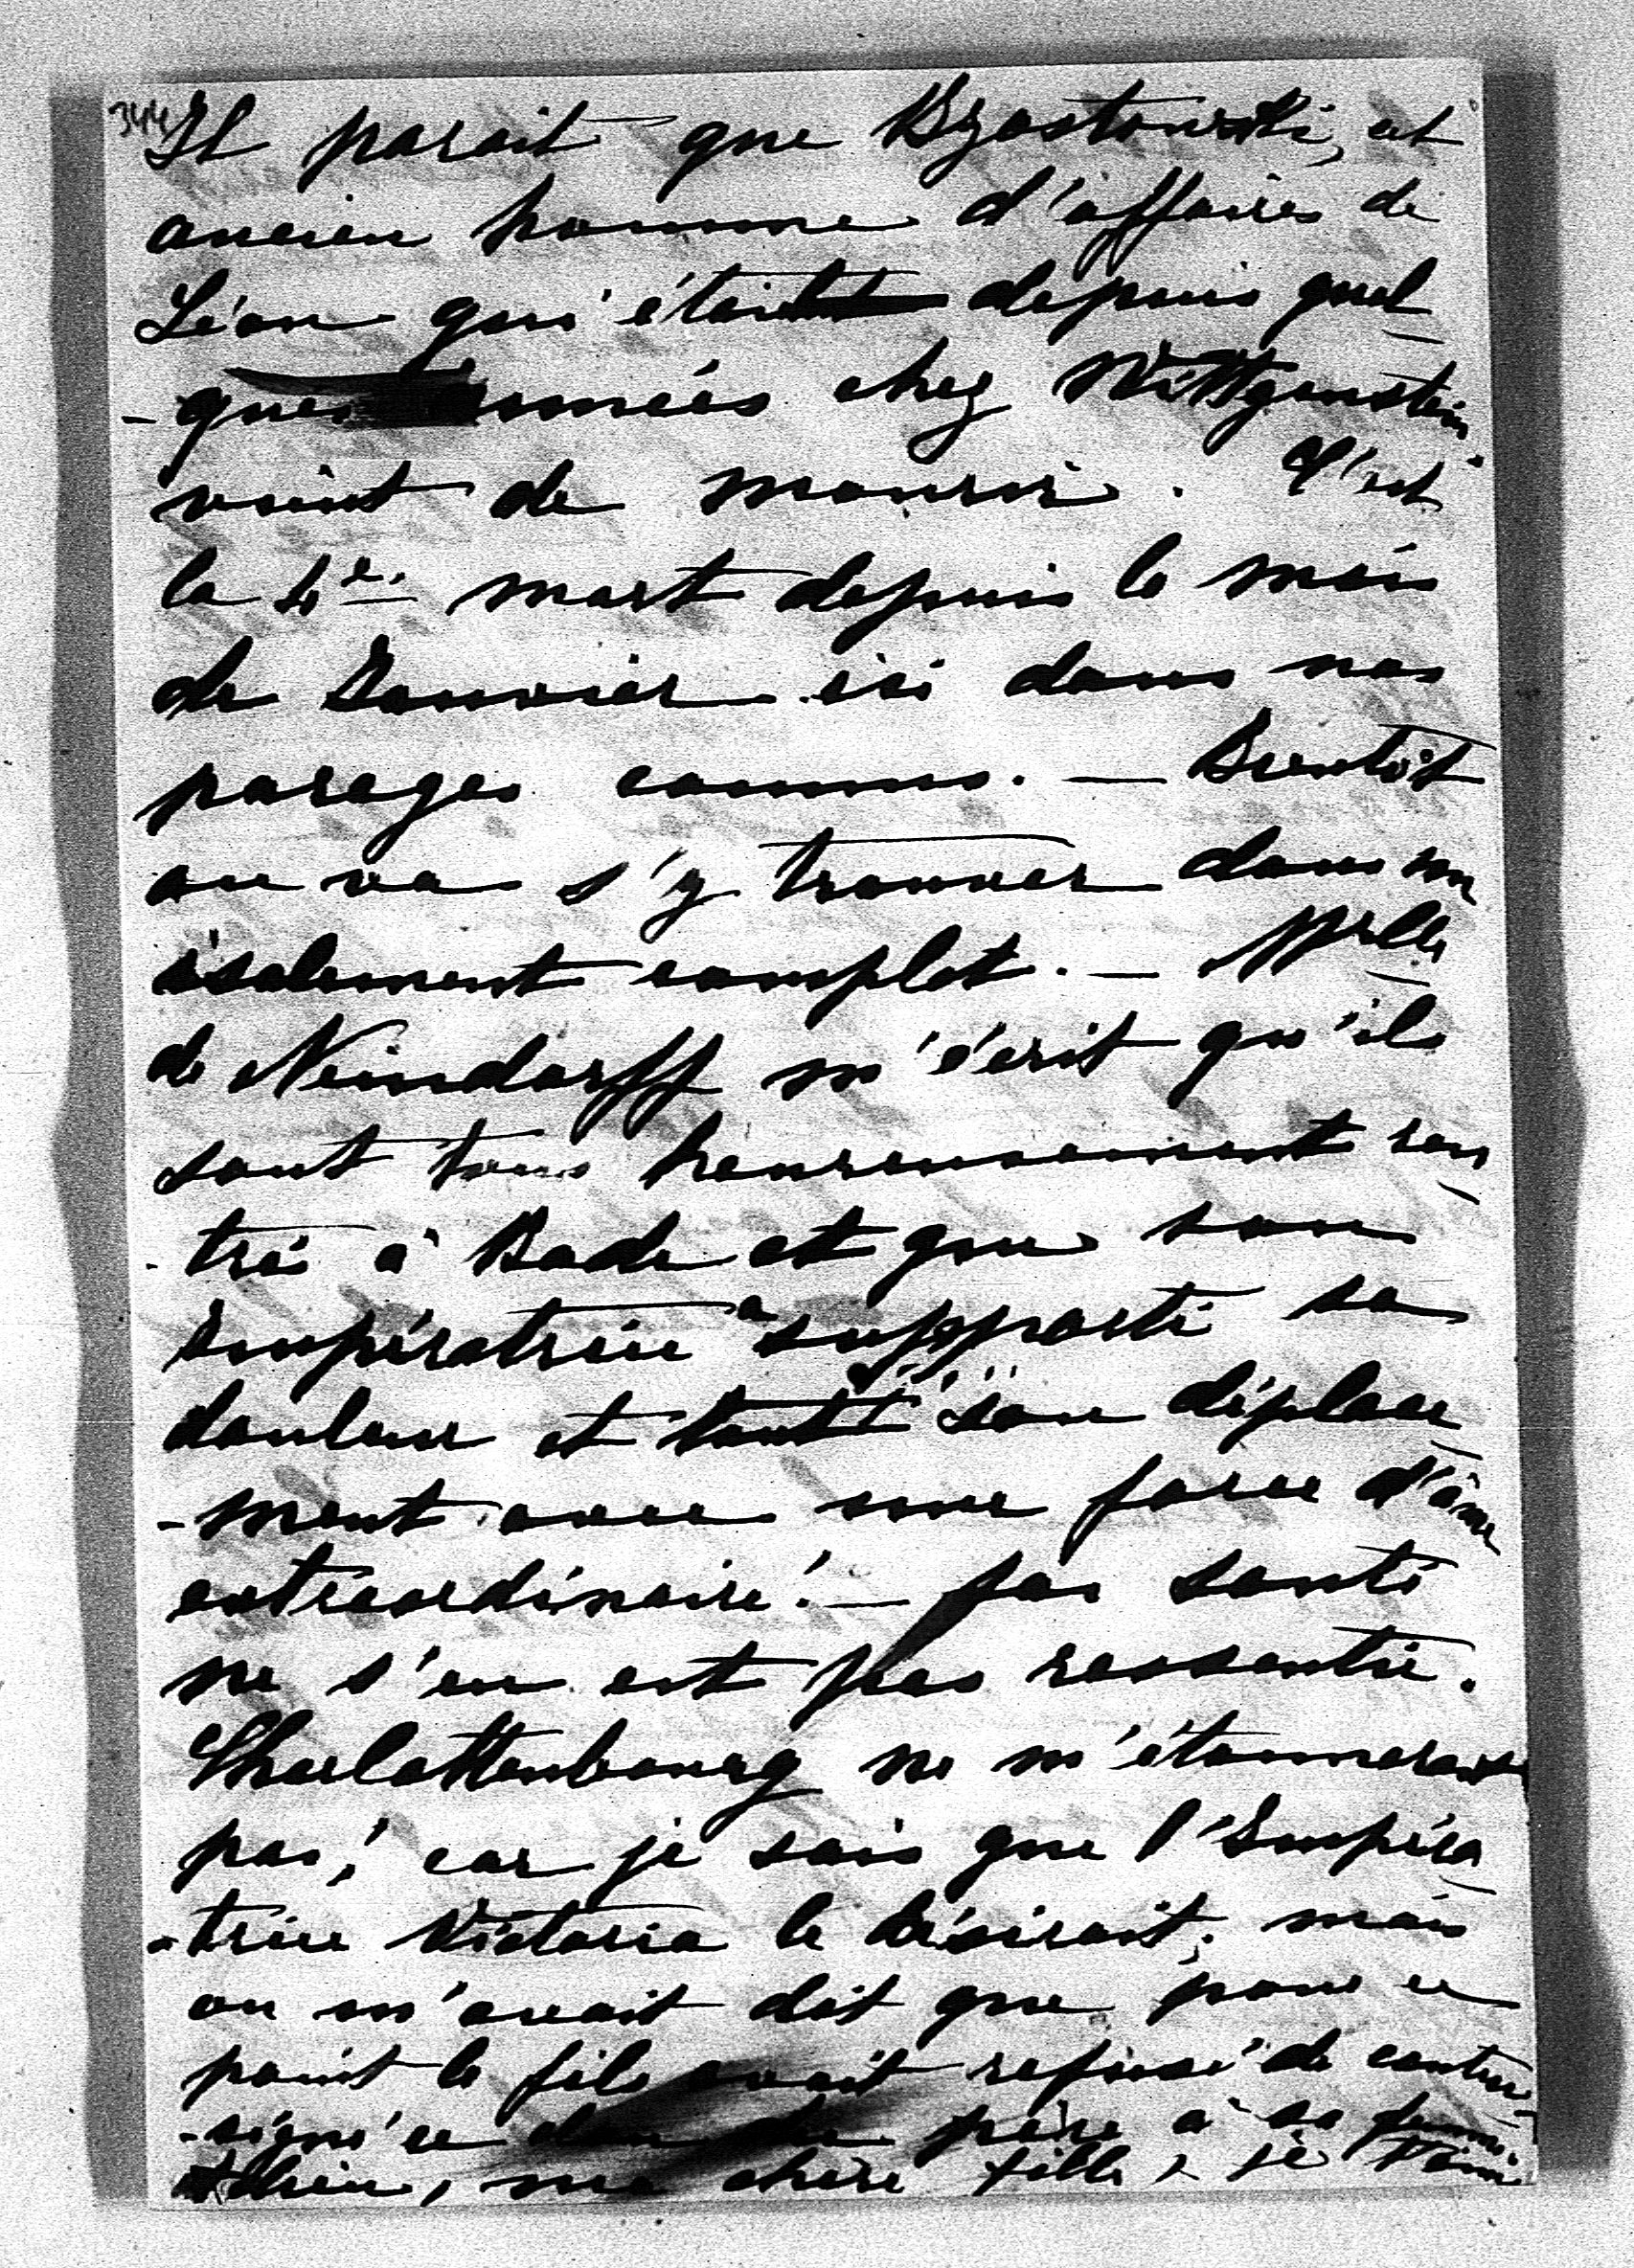 344
Il parait que Brzostowski, cet
ancien homme d'affaires de
Léon qui était depuis quel
-ques années chez Wittgenstein
vient de mourir. C'est
la 4e. mort depuis le mois
de Janvier ici dans nos
parages connus. — Bientôt
on va s'y trouver dans un
isolement complet. — Mlle
de Neindorff m'écrit qu'ils
sont tous heureusement ren
-tré à Bade et que son
Impératrice a supporté sa
douleur et tout son déplace
-ment avec une force d'âme
extraordinaire! — Sa santé
ne s'en est pas ressentie.
Charlottenbourg ne m'étonnerait
pas, car je sais que l'Impéra
-trice Victoria le désirait; mais
on m'avait dit que pour ce
point le fils avait refusé de contre
-signé ce père à sa femme
Adieu, ma chère fille, je t'aime